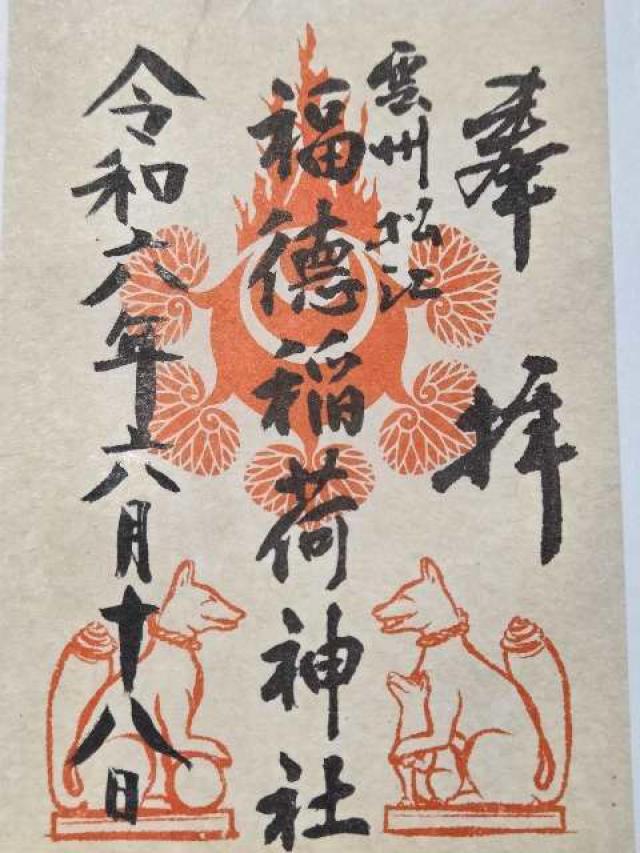 奉拝
雲州松江
福徳稲荷神社
令和六年六月十八日